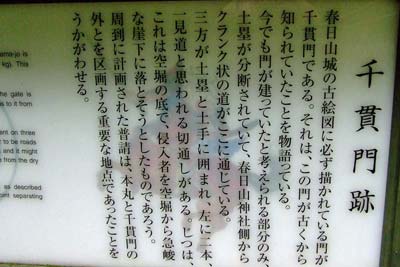 千貫門跡
春日山城の古絵図に必ず描かれている門が
千貫門である。それは、この門が古くから
知られていたことを物語っている。
今でも門が建っていたと考えられる部分のみ、
土塁が分断されていて、春日山神社側から
クランク状の道がここに通じている。
三方が土塁と土手に囲まれ、左に二本、
一見道と思われる切通しがある。じつは、
これは空堀の底で、侵入者を空堀から急峻
な崖下に落とそうとしたものであろう。
周到に計画された普請は、本丸と千貫門の
外とを区画する重要な地点であったことを
うかがわせる。
ama-jo is
kg). This
he gate is
s to it from
ent on three
r to be roads
and it might
from the dry
as described
ant separating